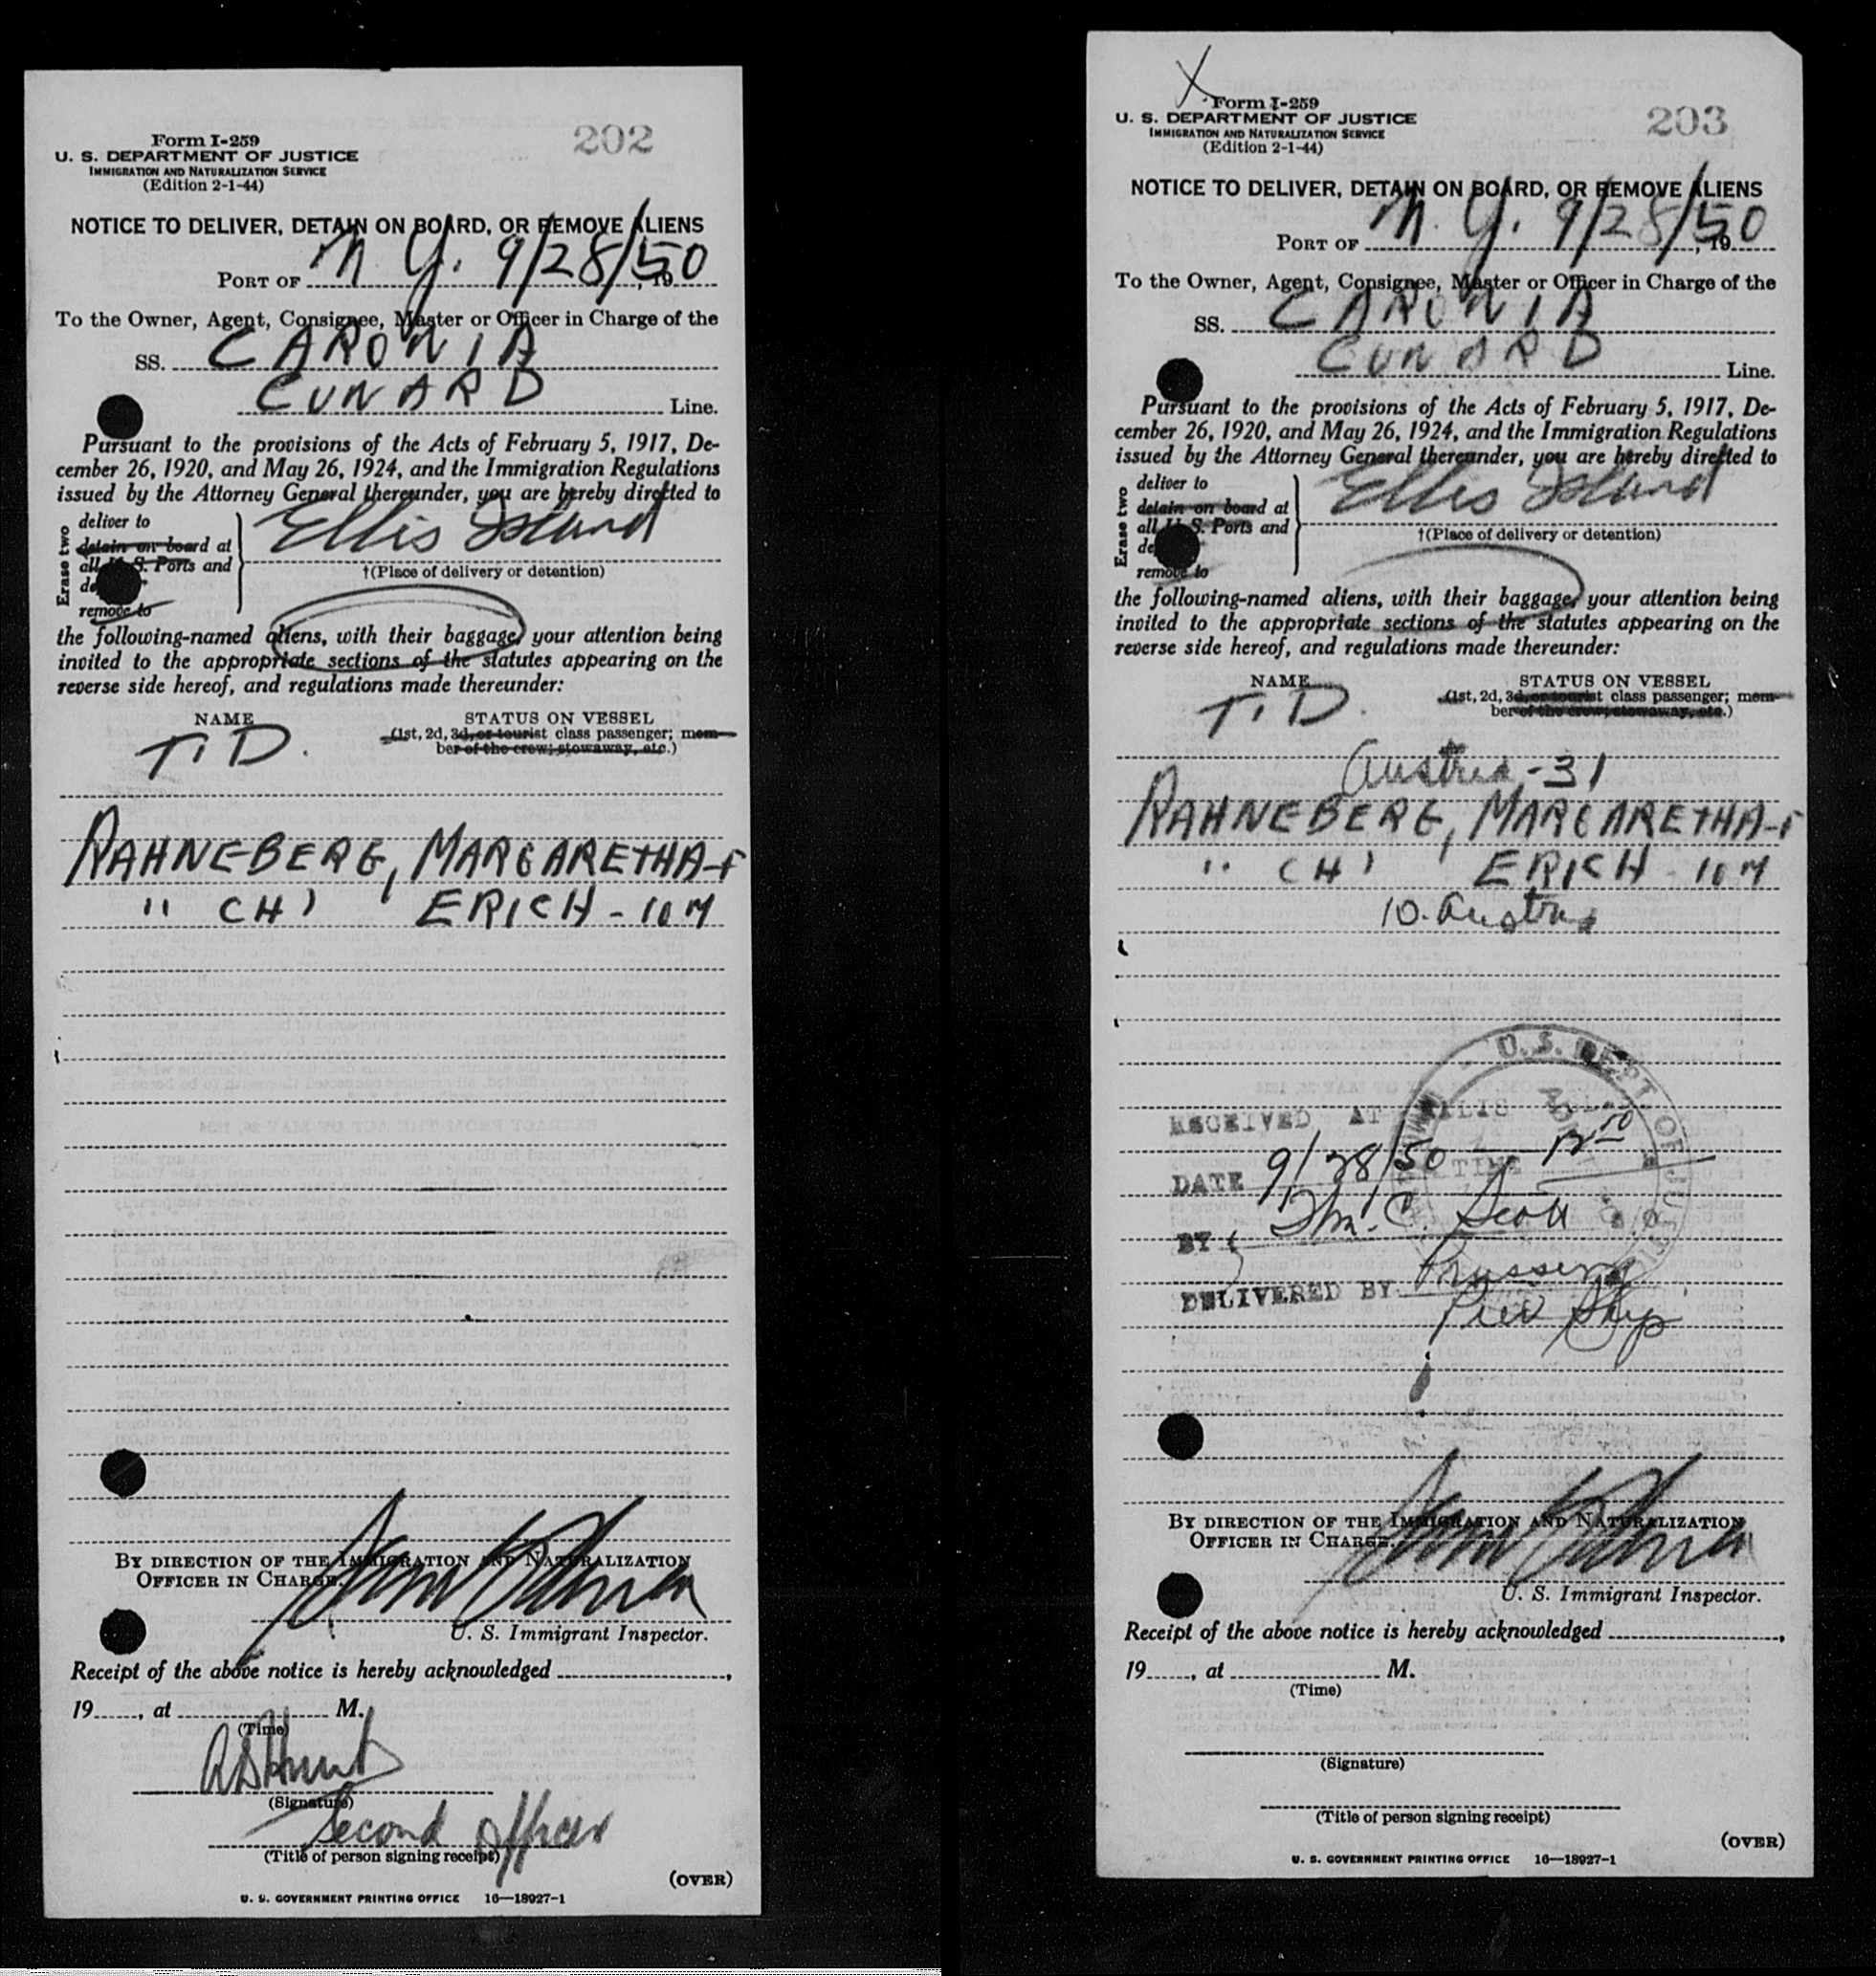 Form I-259
202
U. S. DEPARTMENT OF JUSTICE
IMMIGRATION AND NATURALIZATION SERVICE
(Edition 2-1-44)
NOTICE TO DELIVER, DETAIN ON BOARD, OR REMOVE ALIENS
PORT OF N. Y. 9/28/50, 19
To the Owner, Agent, Consignee, Master or Officer in Charge of the
SS. CARONIA
CUNARD Line.
Pursuant to the provisions of the Acts of February 5, 1917, De-
cember 26, 1920, and May 26, 1924, and the Immigration Regulations
issued by the Attorney General thereunder, you are hereby directed to
Erase two
deliver to
detain on board at
all U. S. Ports and
de
remove to
Ellis Island
†(Place of delivery or detention)
the following-named aliens, with their baggage, your attention being
invited to the appropriate sections of the statutes appearing on the
reverse side hereof, and regulations made thereunder:
NAME
STATUS ON VESSEL
(1st, 2d, 3d, or tourist class passenger; mem-
ber of the crew; stowaway, etc.)
T. D.
RAHNEBERG, MARGARETHA-F
" CH) ERICH - 10 M
BY DIRECTION OF THE IMMIGRATION AND NATURALIZATION
OFFICER IN CHARGE.
U. S. Immigrant Inspector.
Receipt of the above notice is hereby acknowledged ,
19 , at M.
(Time)
Hunt
(Signature)
Second Officer
(Title of person signing receipt)
(OVER)
U. S. GOVERNMENT PRINTING OFFICE 16—18927-1
X
Form I-259
203
U. S. DEPARTMENT OF JUSTICE
IMMIGRATION AND NATURALIZATION SERVICE
(Edition 2-1-44)
NOTICE TO DELIVER, DETAIN ON BOARD, OR REMOVE ALIENS
PORT OF N. Y. 9/28/50, 19
To the Owner, Agent, Consignee, Master or Officer in Charge of the
SS. CARONIA
CUNARD Line.
Pursuant to the provisions of the Acts of February 5, 1917, De-
cember 26, 1920, and May 26, 1924, and the Immigration Regulations
issued by the Attorney General thereunder, you are hereby directed to
Erase two
deliver to
detain on board at
all U. S. Ports and
de
remove to
Ellis Island
†(Place of delivery or detention)
the following-named aliens, with their baggage, your attention being
invited to the appropriate sections of the statutes appearing on the
reverse side hereof, and regulations made thereunder:
NAME
STATUS ON VESSEL
(1st, 2d, 3d, or tourist class passenger; mem-
ber of the crew; stowaway, etc.)
T. D.
Austria - 31
RAHNEBERG, MARGARETHA-F
" CH) ERICH - 10 M
10. Austria
U. S. DEPT OF JUSTICE
RECEIVED AT ELLIS
DATE 9/28/50 TIME
BY C. Scott
DELIVERED BY
Pier Ship
BY DIRECTION OF THE IMMIGRATION AND NATURALIZATION
OFFICER IN CHARGE.
U. S. Immigrant Inspector.
Receipt of the above notice is hereby acknowledged ,
19 , at M.
(Time)
(Signature)
(Title of person signing receipt)
(OVER)
U. S. GOVERNMENT PRINTING OFFICE 16—18927-1